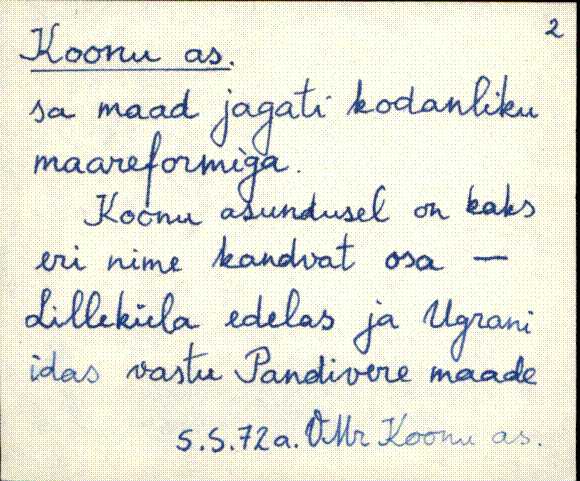 2
Koonu as.
sa maad jagati kodanliku
maareformiga.
Koonu asundusel on kaks
eri nime kandvat osa —
Lilleküla edelas ja Ugrani
idas vastu Pandivere maade
S.S.72a. VMr Koonu as.